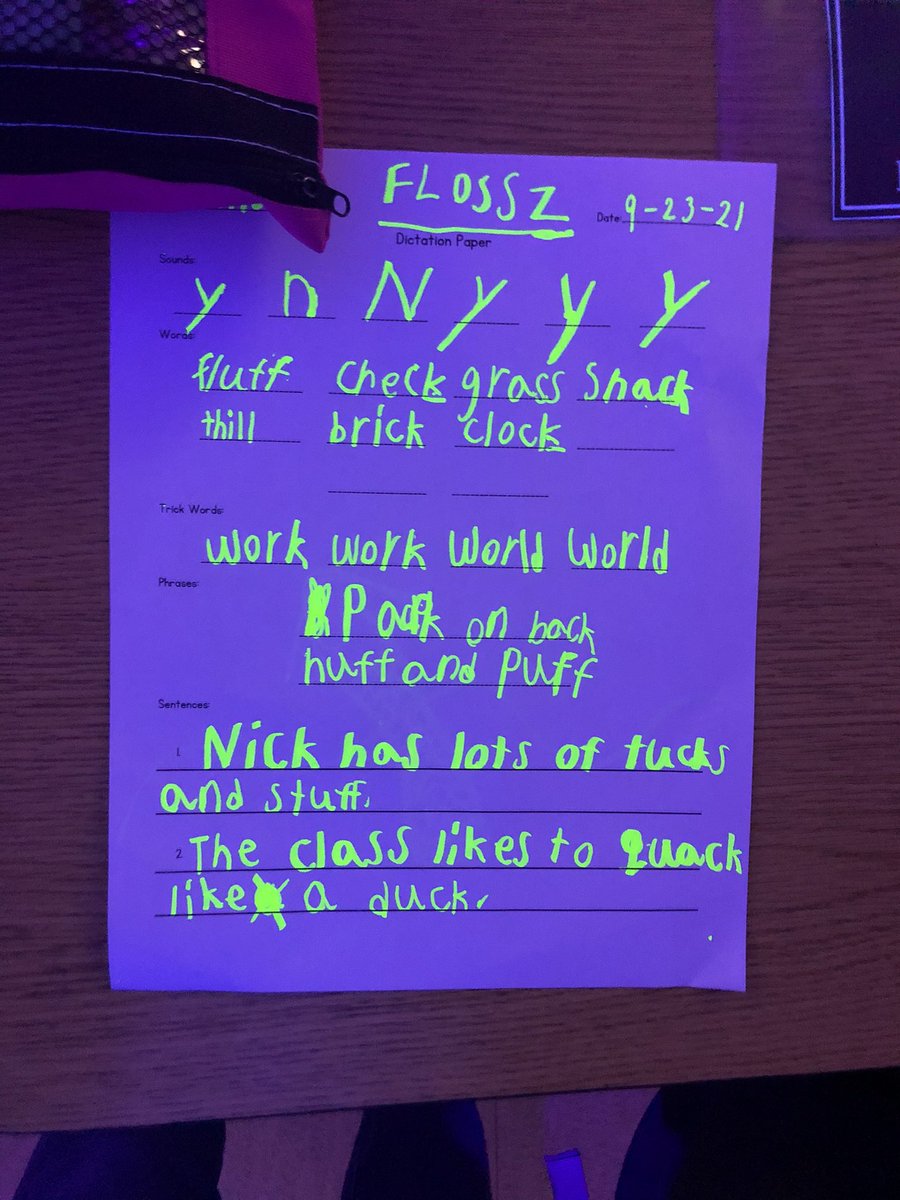 FLOSSZ Date: 9-23-21
Dictation Paper
Sounds:
y n N y y y
Words:
fluff check grass snack
thill brick clock
Trick Words:
work work world world
Phrases:
Pack on back
huff and puff
Sentences:
1. Nick has lots of tucks
and stuff.
2. The class likes to quack
like a duck.